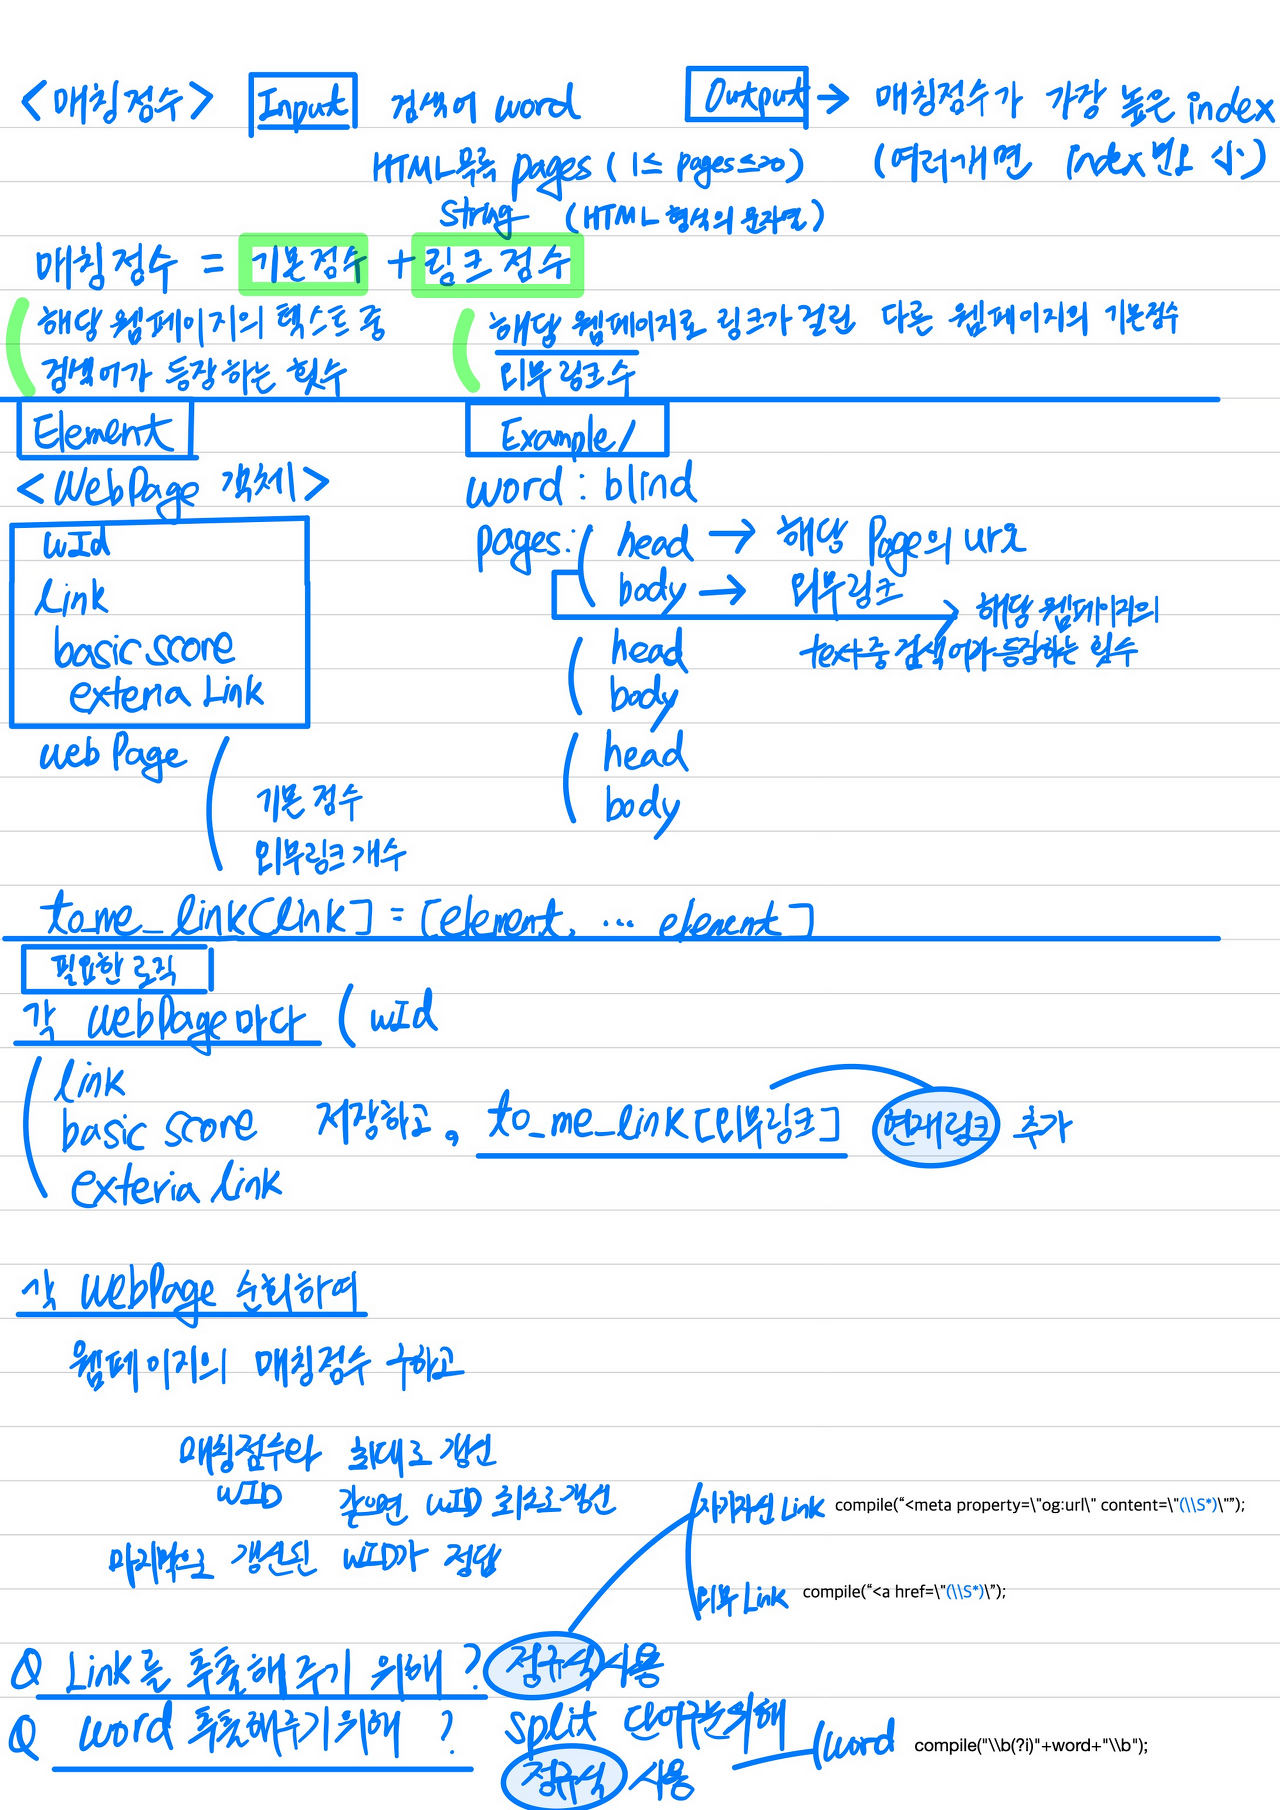 <매칭점수> Input 검색어 word Output → 매칭점수가 가장 높은 index
HTML목록 pages (1≤ pages≤20) (여러개면 index번호 小)
string (HTML 형식의 문자열)
매칭점수 = 기본점수 + 링크점수
해당 웹페이지의 텍스트 중
검색어가 등장하는 횟수
해당 웹페이지로 링크가 걸린 다른 웹페이지의 기본점수
외부 링크수
Element
<WebPage 객체>
wId
link
basic score
exteria Link
Example/
word : blind
pages: head → 해당 Page의 url
body → 외부링크
해당 웹페이지의
text중 검색어가 등장하는 횟수
head
body
head
body
web Page
기본 점수
외부링크 개수
to_me_link[link] = [element, ... element]
필요한 로직
각 webPage마다 ( wId
link
basic score 저장하고, to_me_link[외부링크] 현재링크 추가
exteria link
각 WebPage 순회하여
웹페이지의 매칭점수 구하고
매칭점수와 최대로 갱신
WID 같으면 WID 최소로 갱신
마지막으로 갱신된 WID가 정답
자기자신 Link compile(“<meta property=\"og:url\" content=\"(\\S*)\"”);
외부 Link compile(“<a href=\"(\\S*)\”);
Q Link를 추출해주기 위해 ? 정규식 사용
Q word 추출해주기위해 ? split 단어구분위해
정규식 사용
(word compile("\\b(?i)"+word+"\\b");